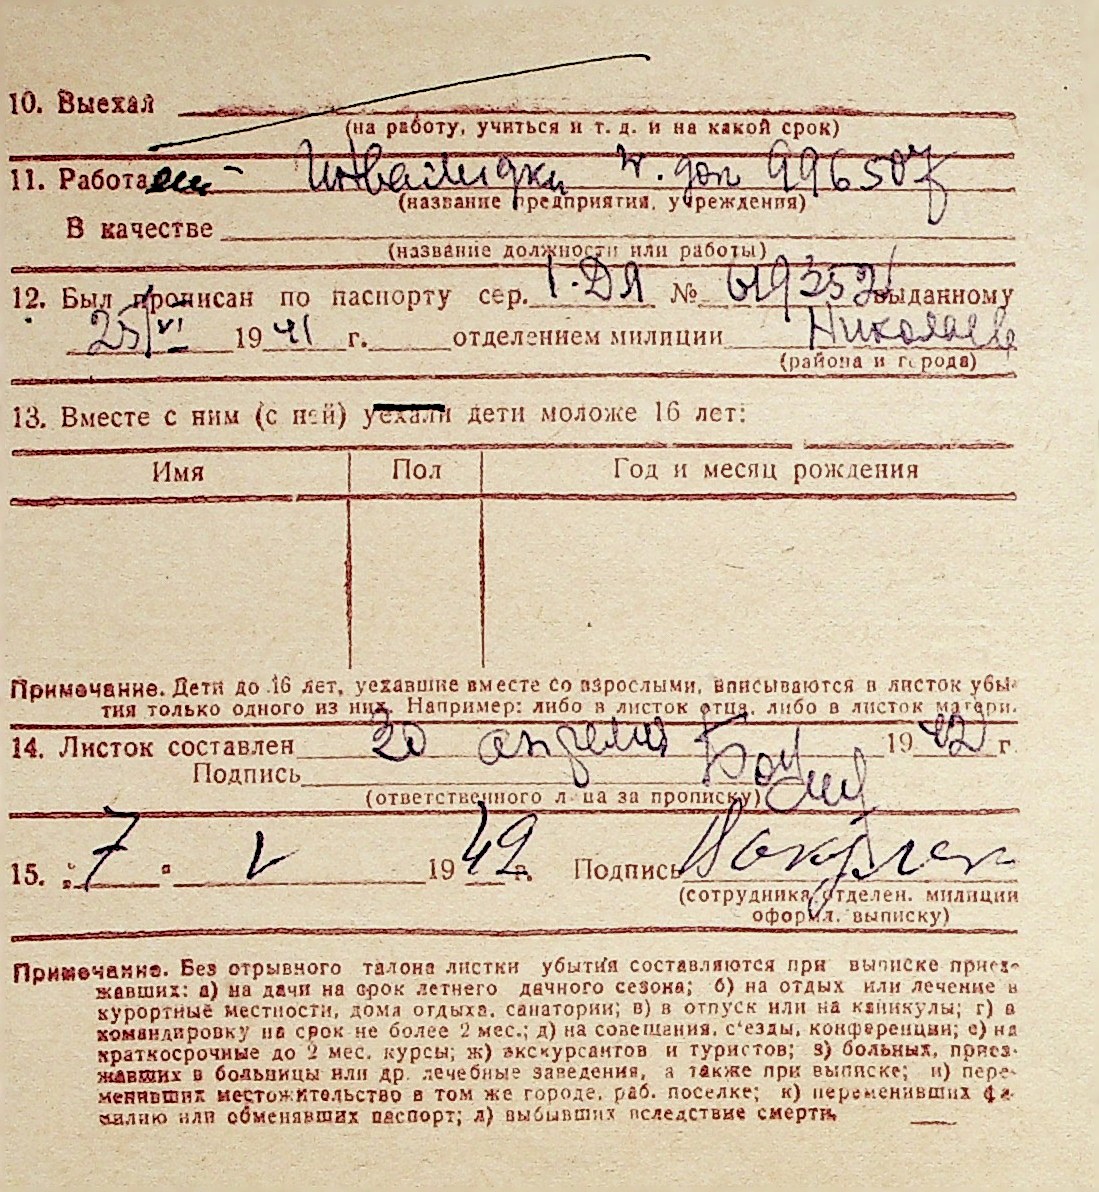 10. Выехал
(на работу, учиться и т. д. и на какой срок)
11. Работа Инвалидка
(название предприятия, учреждения)
В качестве
(название должности или работы)
12. Был прописан по паспорту сер. I-ДЯ № 619352 выданному
25/VI 1941 г. отделением милиции Николаев
(района и города)
13. Вместе с ним (с ней) уехали дети моложе 16 лет:
Имя Пол Год и месяц рождения
Примечание. Дети до 16 лет, уехавшие вместе со взрослыми, вписываются в листок убы-
тия только одного из них. Например: либо в листок отца, либо в листок матери.
14. Листок составлен 30 апреля 1942 г.
Подпись
(ответственного лица за прописку)
15. „7“ V 1942 г. Подпись
(сотрудника отделен. милиции
оформл. выписку)
Примечание. Без отрывного талона листки убытия составляются при выписке приез-
жавших: а) на дачи на срок летнего дачного сезона; б) на отдых или лечение в
курортные местности, дома отдыха, санатории; в) в отпуск или на каникулы; г) в
командировку на срок не более 2 мес.; д) на совещания, с'езды, конференции; е) на
краткосрочные до 2 мес. курсы; ж) экскурсантов и туристов; з) больных, приез-
жавших в больницы или др. лечебные заведения, а также при выписке; и) пере-
менивших местожительство в том же городе, раб. поселке; к) переменивших фа-
милию или обменявших паспорт; л) выбывших вследствие смерти.